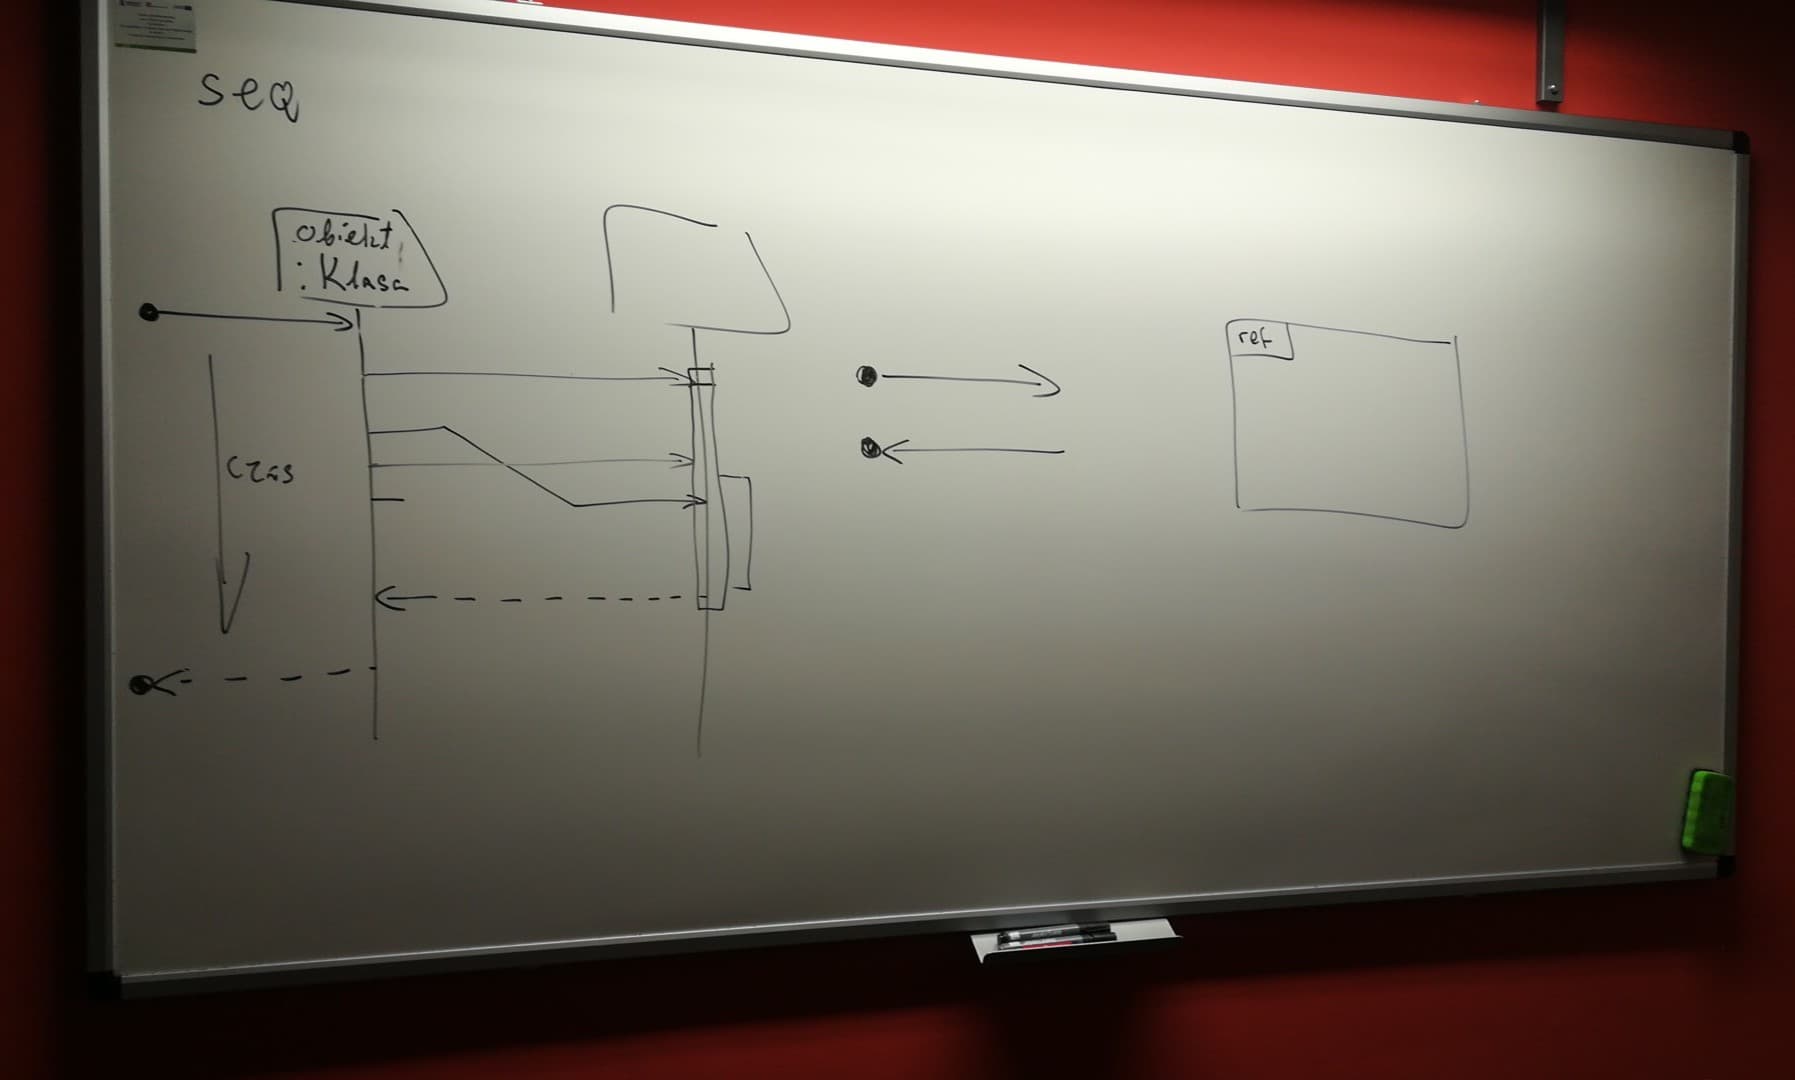 seQ
obiekt
: Klasa
Czas
ref